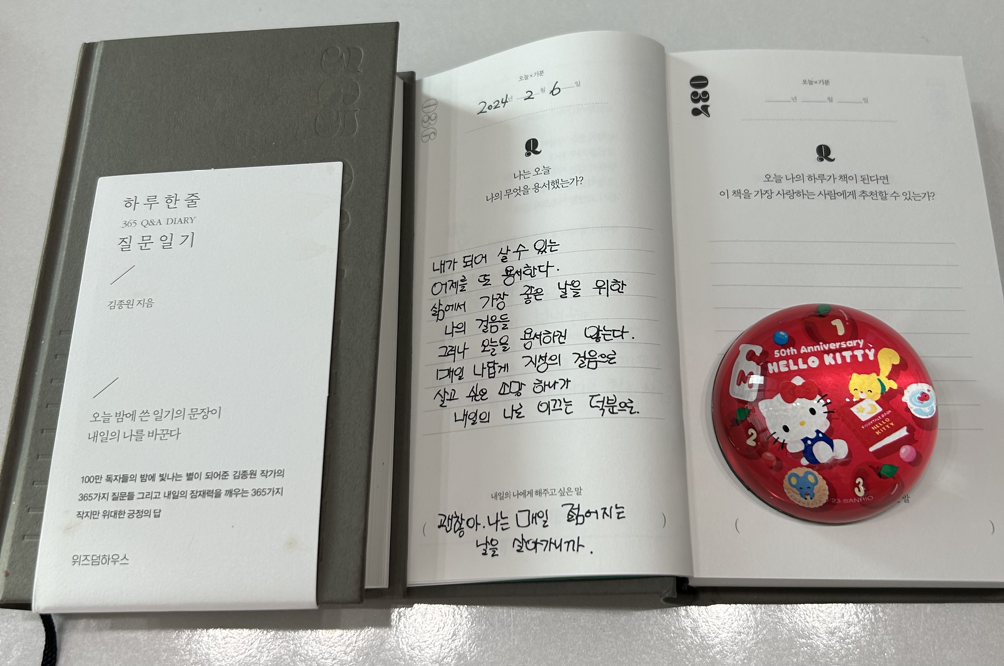 하루한줄
365 Q&A DIARY
질문일기
김종원 지음
오늘 밤에 쓴 일기의 문장이
내일의 나를 바꾼다
100만 독자들의 밤에 빛나는 별이 되어준 김종원 작가의
365가지 질문들 그리고 내일의 잠재력을 깨우는 365가지
작지만 위대한 긍정의 답
위즈덤하우스
036
오늘×기분
2024년 2월 6일
Q
나는 오늘
나의 무엇을 용서했는가?
내가 되어 살 수 있는
어제를 또 용서한다.
삶에서 가장 좋은 날을 위한
나의 걸음들
그러나 오늘을 용서하진 않는다.
매일 나답게 지성의 걸음으로
살고 싶은 소망 하나가
내일의 나로 이끄는 덕분으로.
내일의 나에게 해주고 싶은 말
( 괜찮아. 나는 매일 젊어지는 )
날을 살아가니까.
037
오늘×기분
년 월 일
Q
오늘 나의 하루가 책이 된다면
이 책을 가장 사랑하는 사람에게 추천할 수 있는가?
1
50th Anniversary
HELLO KITTY
2
HELLO
KITTY
3
SANRIO
말
( )